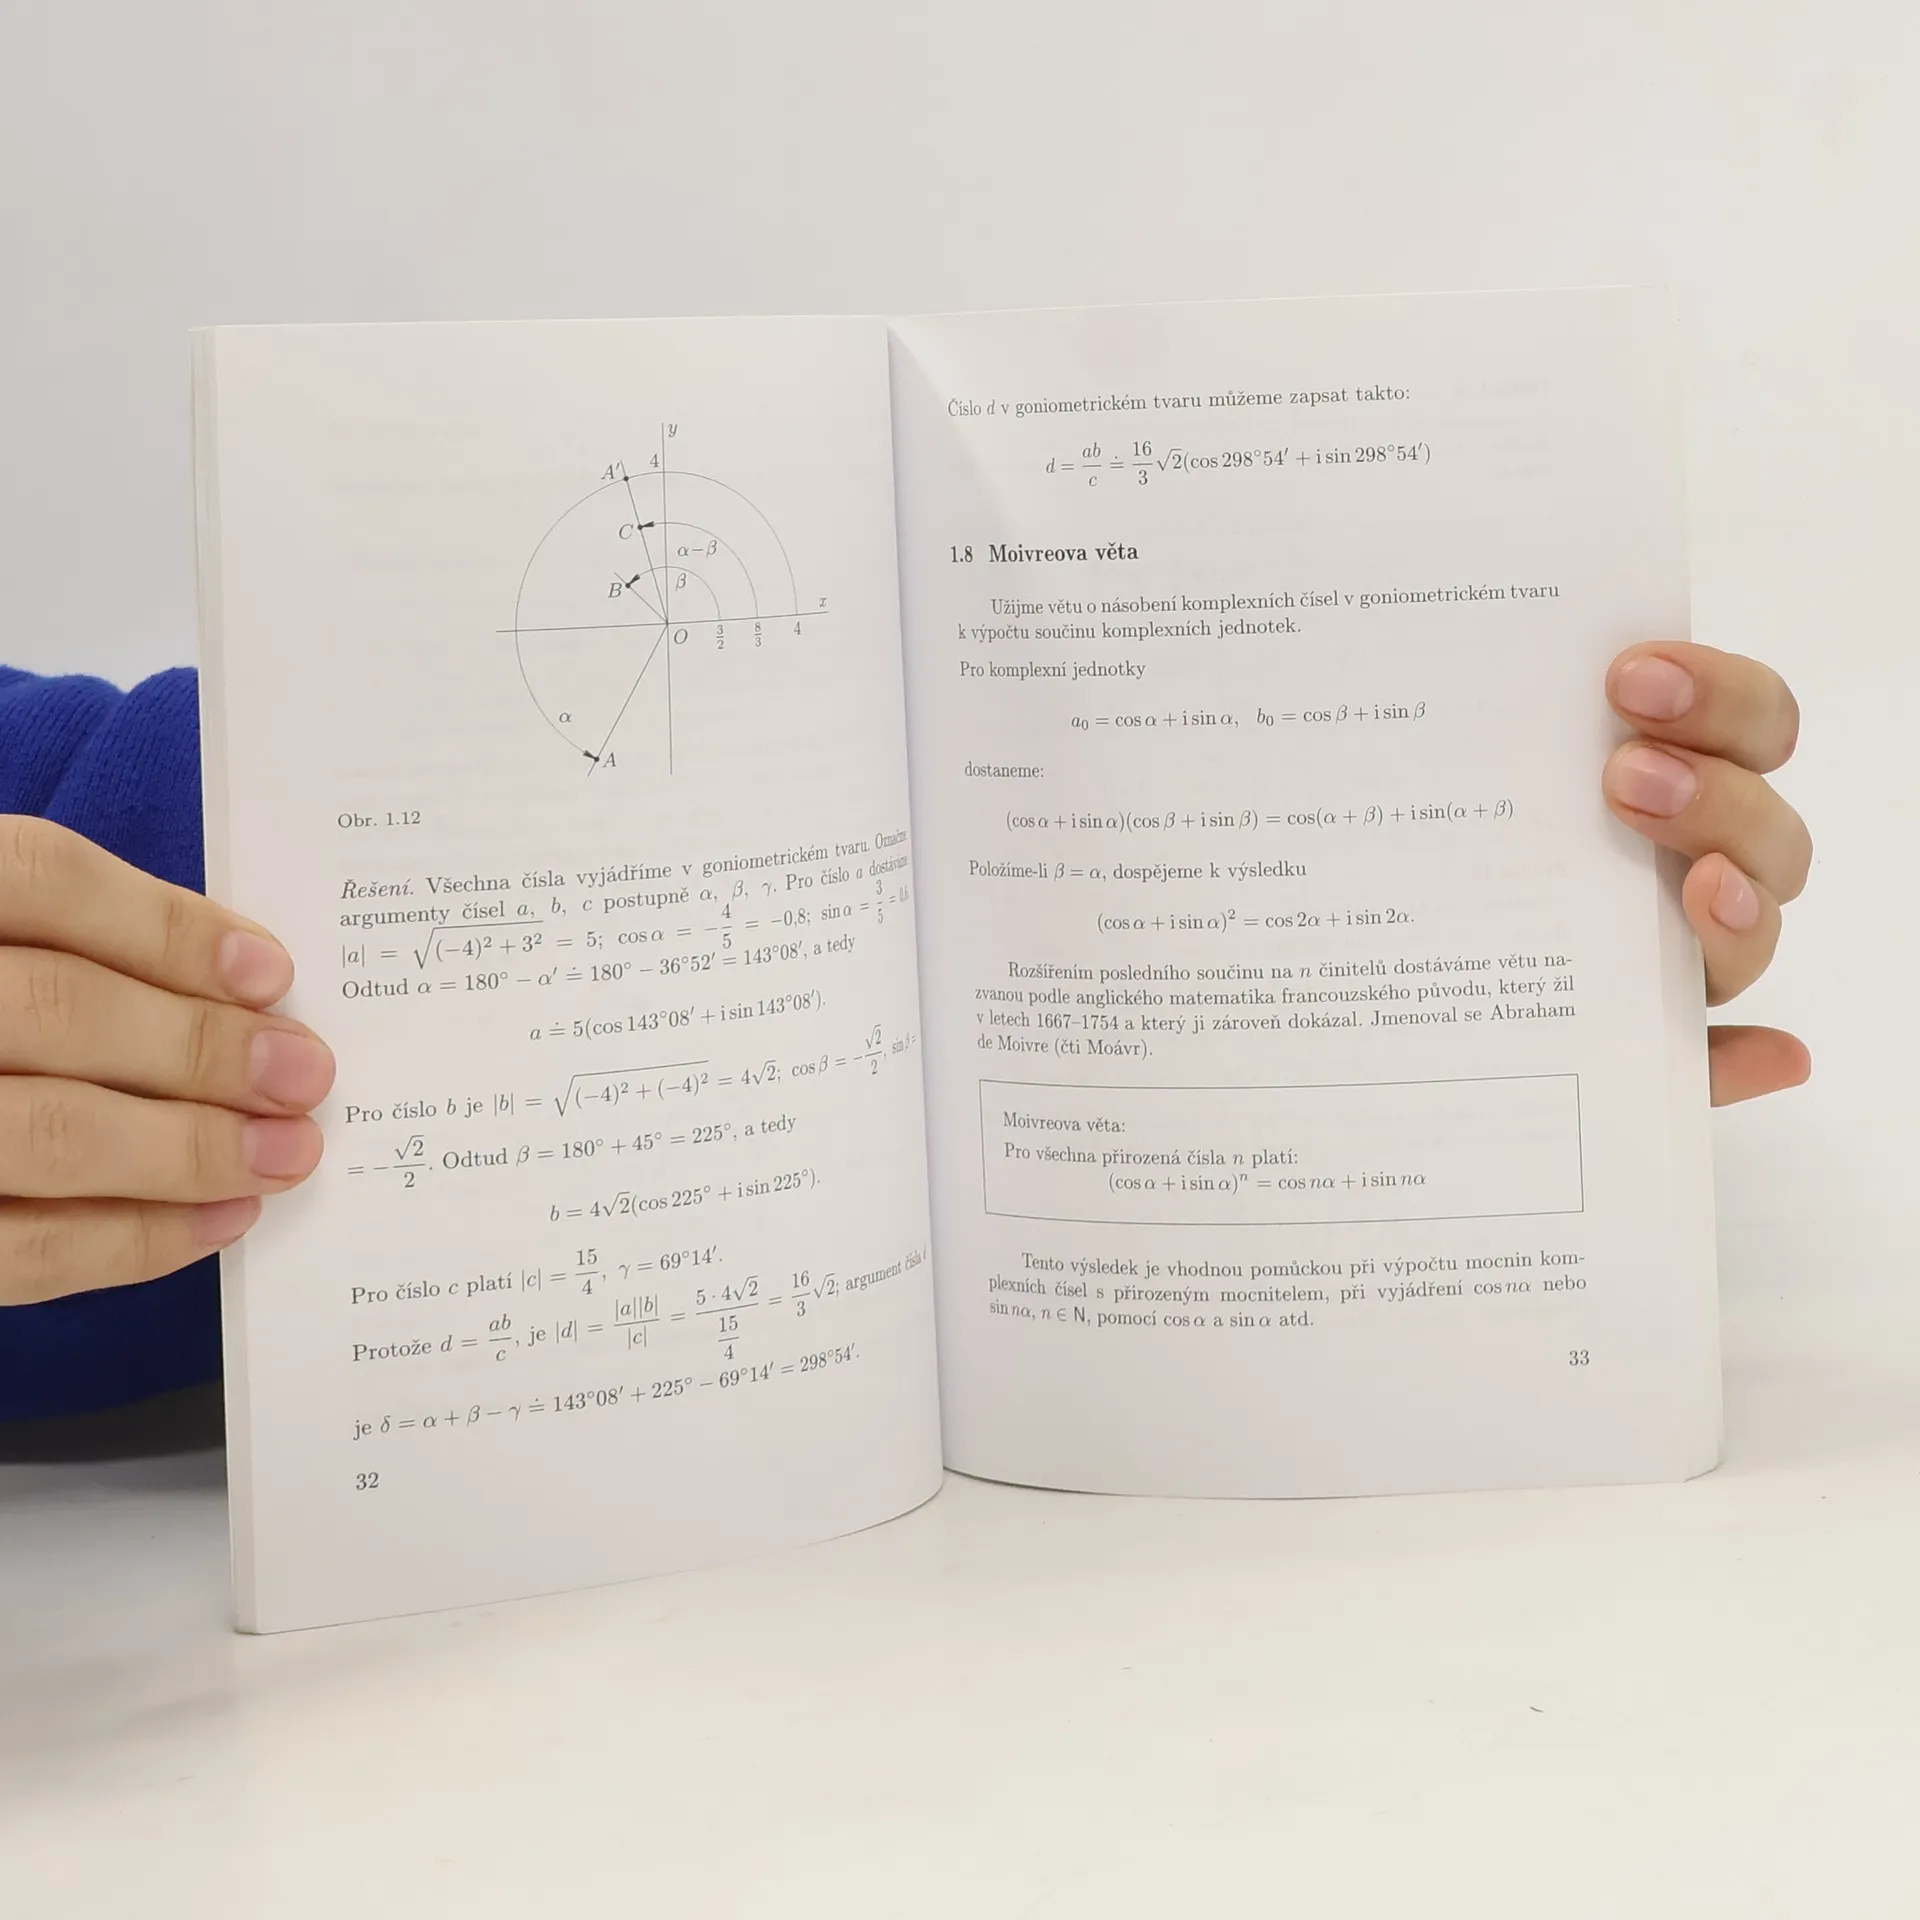 y
A' 4
C
α−β
B β
x
O 3/2 8/3 4
α
A
Obr. 1.12
Řešení. Všechna čísla vyjádříme v goniometrickém tvaru. Označme
argumenty čísel a, b, c postupně α, β, γ. Pro číslo a dostáváme
|a| = √((−4)² + 3²) = 5; cos α = −4/5 = −0,8; sin α = 3/5 =
Odtud α = 180° − α′ ≐ 180° − 36°52′ = 143°08′, a tedy
a ≐ 5(cos 143°08′ + i sin 143°08′).
Pro číslo b je |b| = √((−4)² + (−4)²) = 4√2; cos β = −√2/2, sin β =
= −√2/2. Odtud β = 180° + 45° = 225°, a tedy
b = 4√2(cos 225° + i sin 225°).
Pro číslo c platí |c| = 15/4, γ = 69°14′.
Protože d = ab/c, je |d| = |a||b|/|c| = (5 · 4√2)/(15/4) = 16/3 √2; argument čísla d
je δ = α + β − γ ≐ 143°08′ + 225° − 69°14′ = 298°54′.
32
Číslo d v goniometrickém tvaru můžeme zapsat takto:
d = ab/c ≐ 16/3 √2(cos 298°54′ + i sin 298°54′)
1.8 Moivreova věta
Užijme větu o násobení komplexních čísel v goniometrickém tvaru
k výpočtu součinu komplexních jednotek.
Pro komplexní jednotky
a₀ = cos α + i sin α, b₀ = cos β + i sin β
dostaneme:
(cos α + i sin α)(cos β + i sin β) = cos(α + β) + i sin(α + β)
Položíme-li β = α, dospějeme k výsledku
(cos α + i sin α)² = cos 2α + i sin 2α.
Rozšířením posledního součinu na n činitelů dostáváme větu na-
zvanou podle anglického matematika francouzského původu, který žil
v letech 1667–1754 a který ji zároveň dokázal. Jmenoval se Abraham
de Moivre (čti Moávr).
Moivreova věta:
Pro všechna přirozená čísla n platí:
(cos α + i sin α)ⁿ = cos nα + i sin nα
Tento výsledek je vhodnou pomůckou při výpočtu mocnin kom-
plexních čísel s přirozeným mocnitelem, při vyjádření cos nα nebo
sin nα, n ∈ N, pomocí cos α a sin α atd.
33